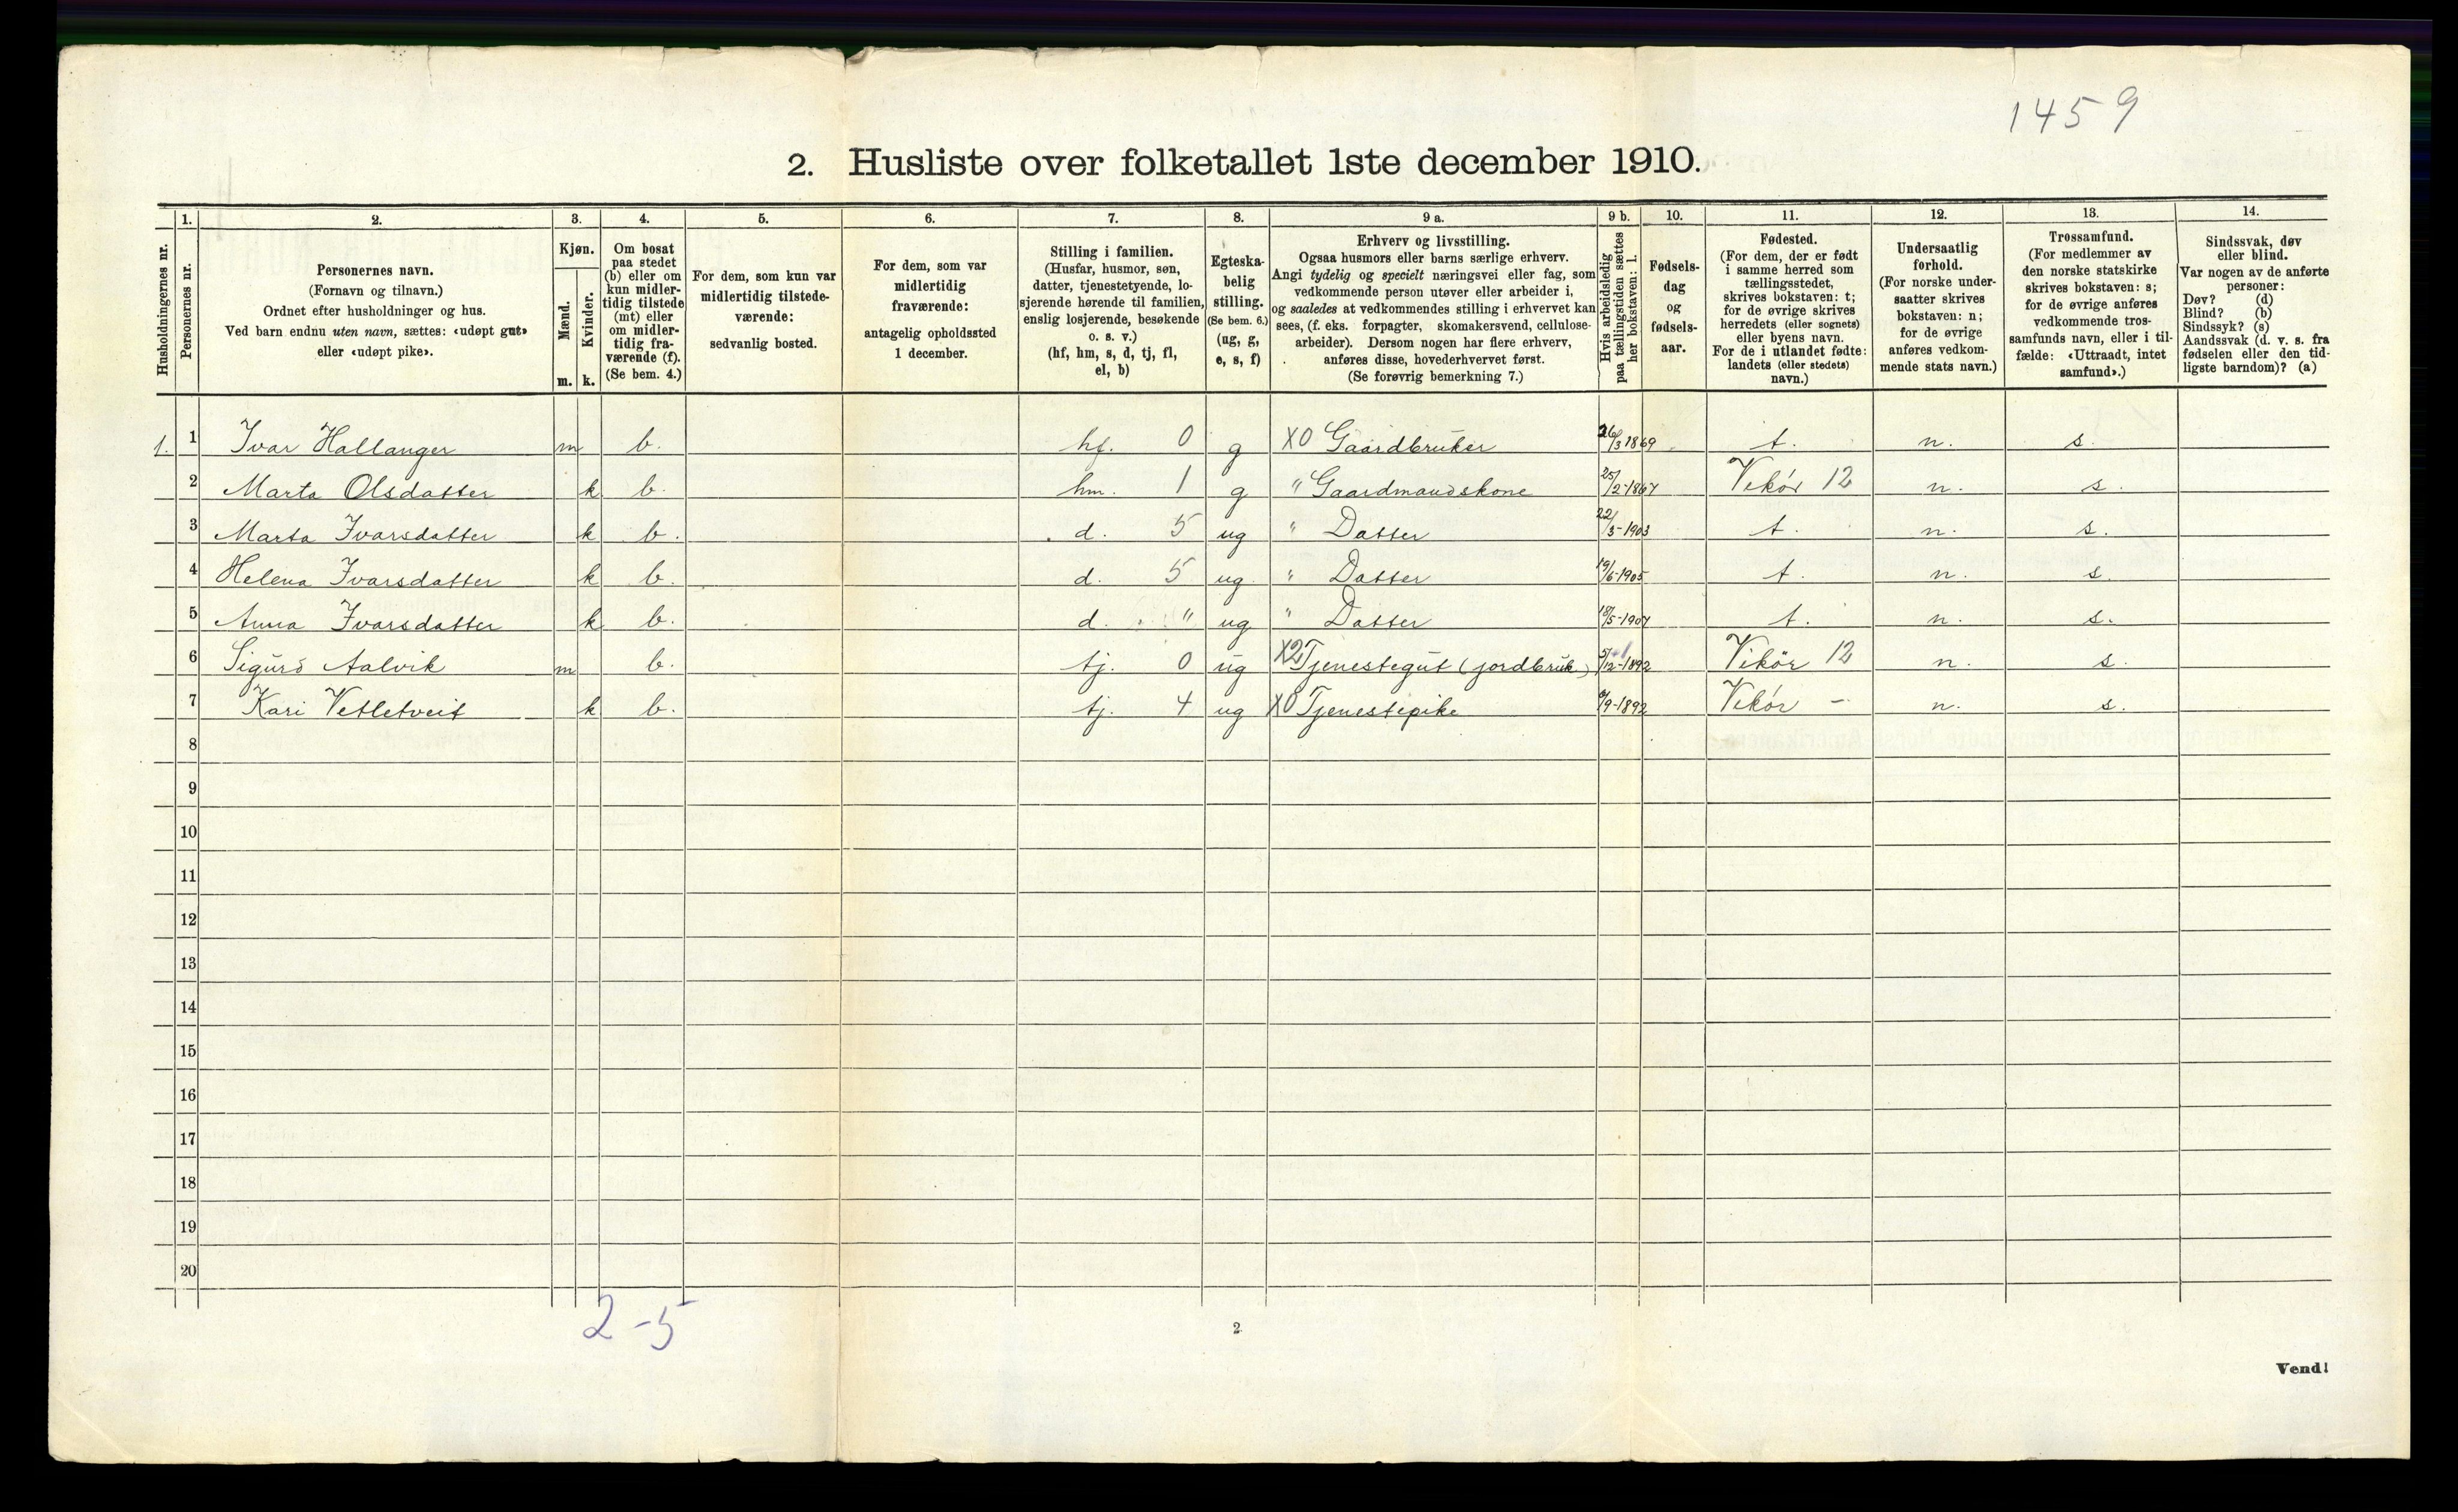 1459
2. Husliste over folketallet 1ste december 1910.
Husholdningernes nr.
1. Personernes nr.
2. Personernes navn.
(Fornavn og tilnavn.)
Ordnet efter husholdninger og hus.
Ved barn endnu uten navn, sættes: «udøpt gut»
eller «udøpt pike».
3. Kjøn.
Mænd. m.
Kvinder. k.
4. Om bosat
paa stedet
(b) eller om
kun midler-
tidig tilstede
(mt) eller
om midler-
tidig fra-
værende (f).
(Se bem. 4.)
5. For dem, som kun var
midlertidig tilstede-
værende:
sedvanlig bosted.
6. For dem, som var
midlertidig
fraværende:
antagelig opholdssted
1 december.
7. Stilling i familien.
(Husfar, husmor, søn,
datter, tjenestetyende, lo-
sjerende hørende til familien,
enslig losjerende, besøkende
o. s. v.)
(hf, hm, s, d, tj, fl,
el, b)
8. Egteska-
belig
stilling.
(Se bem. 6.)
(ug, g,
e, s, f)
9 a. Erhverv og livsstilling.
Ogsaa husmors eller barns særlige erhverv.
Angi tydelig og specielt næringsvei eller fag, som
vedkommende person utøver eller arbeider i,
og saaledes at vedkommendes stilling i erhvervet kan
sees, (f. eks. forpagter, skomakersvend, cellulose-
arbeider). Dersom nogen har flere erhverv,
anføres disse, hovederhvervet først.
(Se forøvrig bemerkning 7.)
9 b. Hvis arbeidsledig
paa tællingstiden sættes
her bokstaven: l.
10. Fødsels-
dag
og
fødsels-
aar.
11. Fødested.
(For dem, der er født
i samme herred som
tællingsstedet,
skrives bokstaven: t;
for de øvrige skrives
herredets (eller sognets)
eller byens navn.
For de i utlandet fødte:
landets (eller stedets)
navn.)
12. Undersaatlig
forhold.
(For norske under-
saatter skrives
bokstaven: n;
for de øvrige
anføres vedkom-
mende stats navn.)
13. Trossamfund.
(For medlemmer av
den norske statskirke
skrives bokstaven: s;
for de øvrige anføres
vedkommende tros-
samfunds navn, eller i til-
fælde: «Uttraadt, intet
samfund».)
14. Sindssvak, døv
eller blind.
Var nogen av de anførte
personer:
Døv? (d)
Blind? (b)
Sindssyk? (s)
Aandssvak (d. v. s. fra
fødselen eller den tid-
ligste barndom)? (a)
1. 1 Ivar Hallanger m b. hf. 0 g X0 Gaardbruker 26/3 1869 t. n. s.
2 Marta Olsdatter k b. hm. 1 g " Gaardmandskone 25/2-1867 Vikör 12 n. s.
3 Marta Ivarsdatter k b. d. 5 ug " Datter 22/3-1903 t. n. s.
4 Helena Ivarsdatter k b. d. 5 ug " Datter 19/6-1905 t. n. s.
5 Anna Ivarsdatter k b. d. " ug " Datter 18/5-1907 t. n. s.
6 Sigurd Aalvik m b. tj. 0 ug X2 Tjenestegut (jordbruk) 5/12-1892 Vikör 12 n. s.
7 Kari Vetletveit k b. tj. 4 ug X0 Tjenestepike /9-1892 Vikör - n. s.
8
9
10
11
12
13
14
15
16
17
18
19
20
2-5
2
Vend!